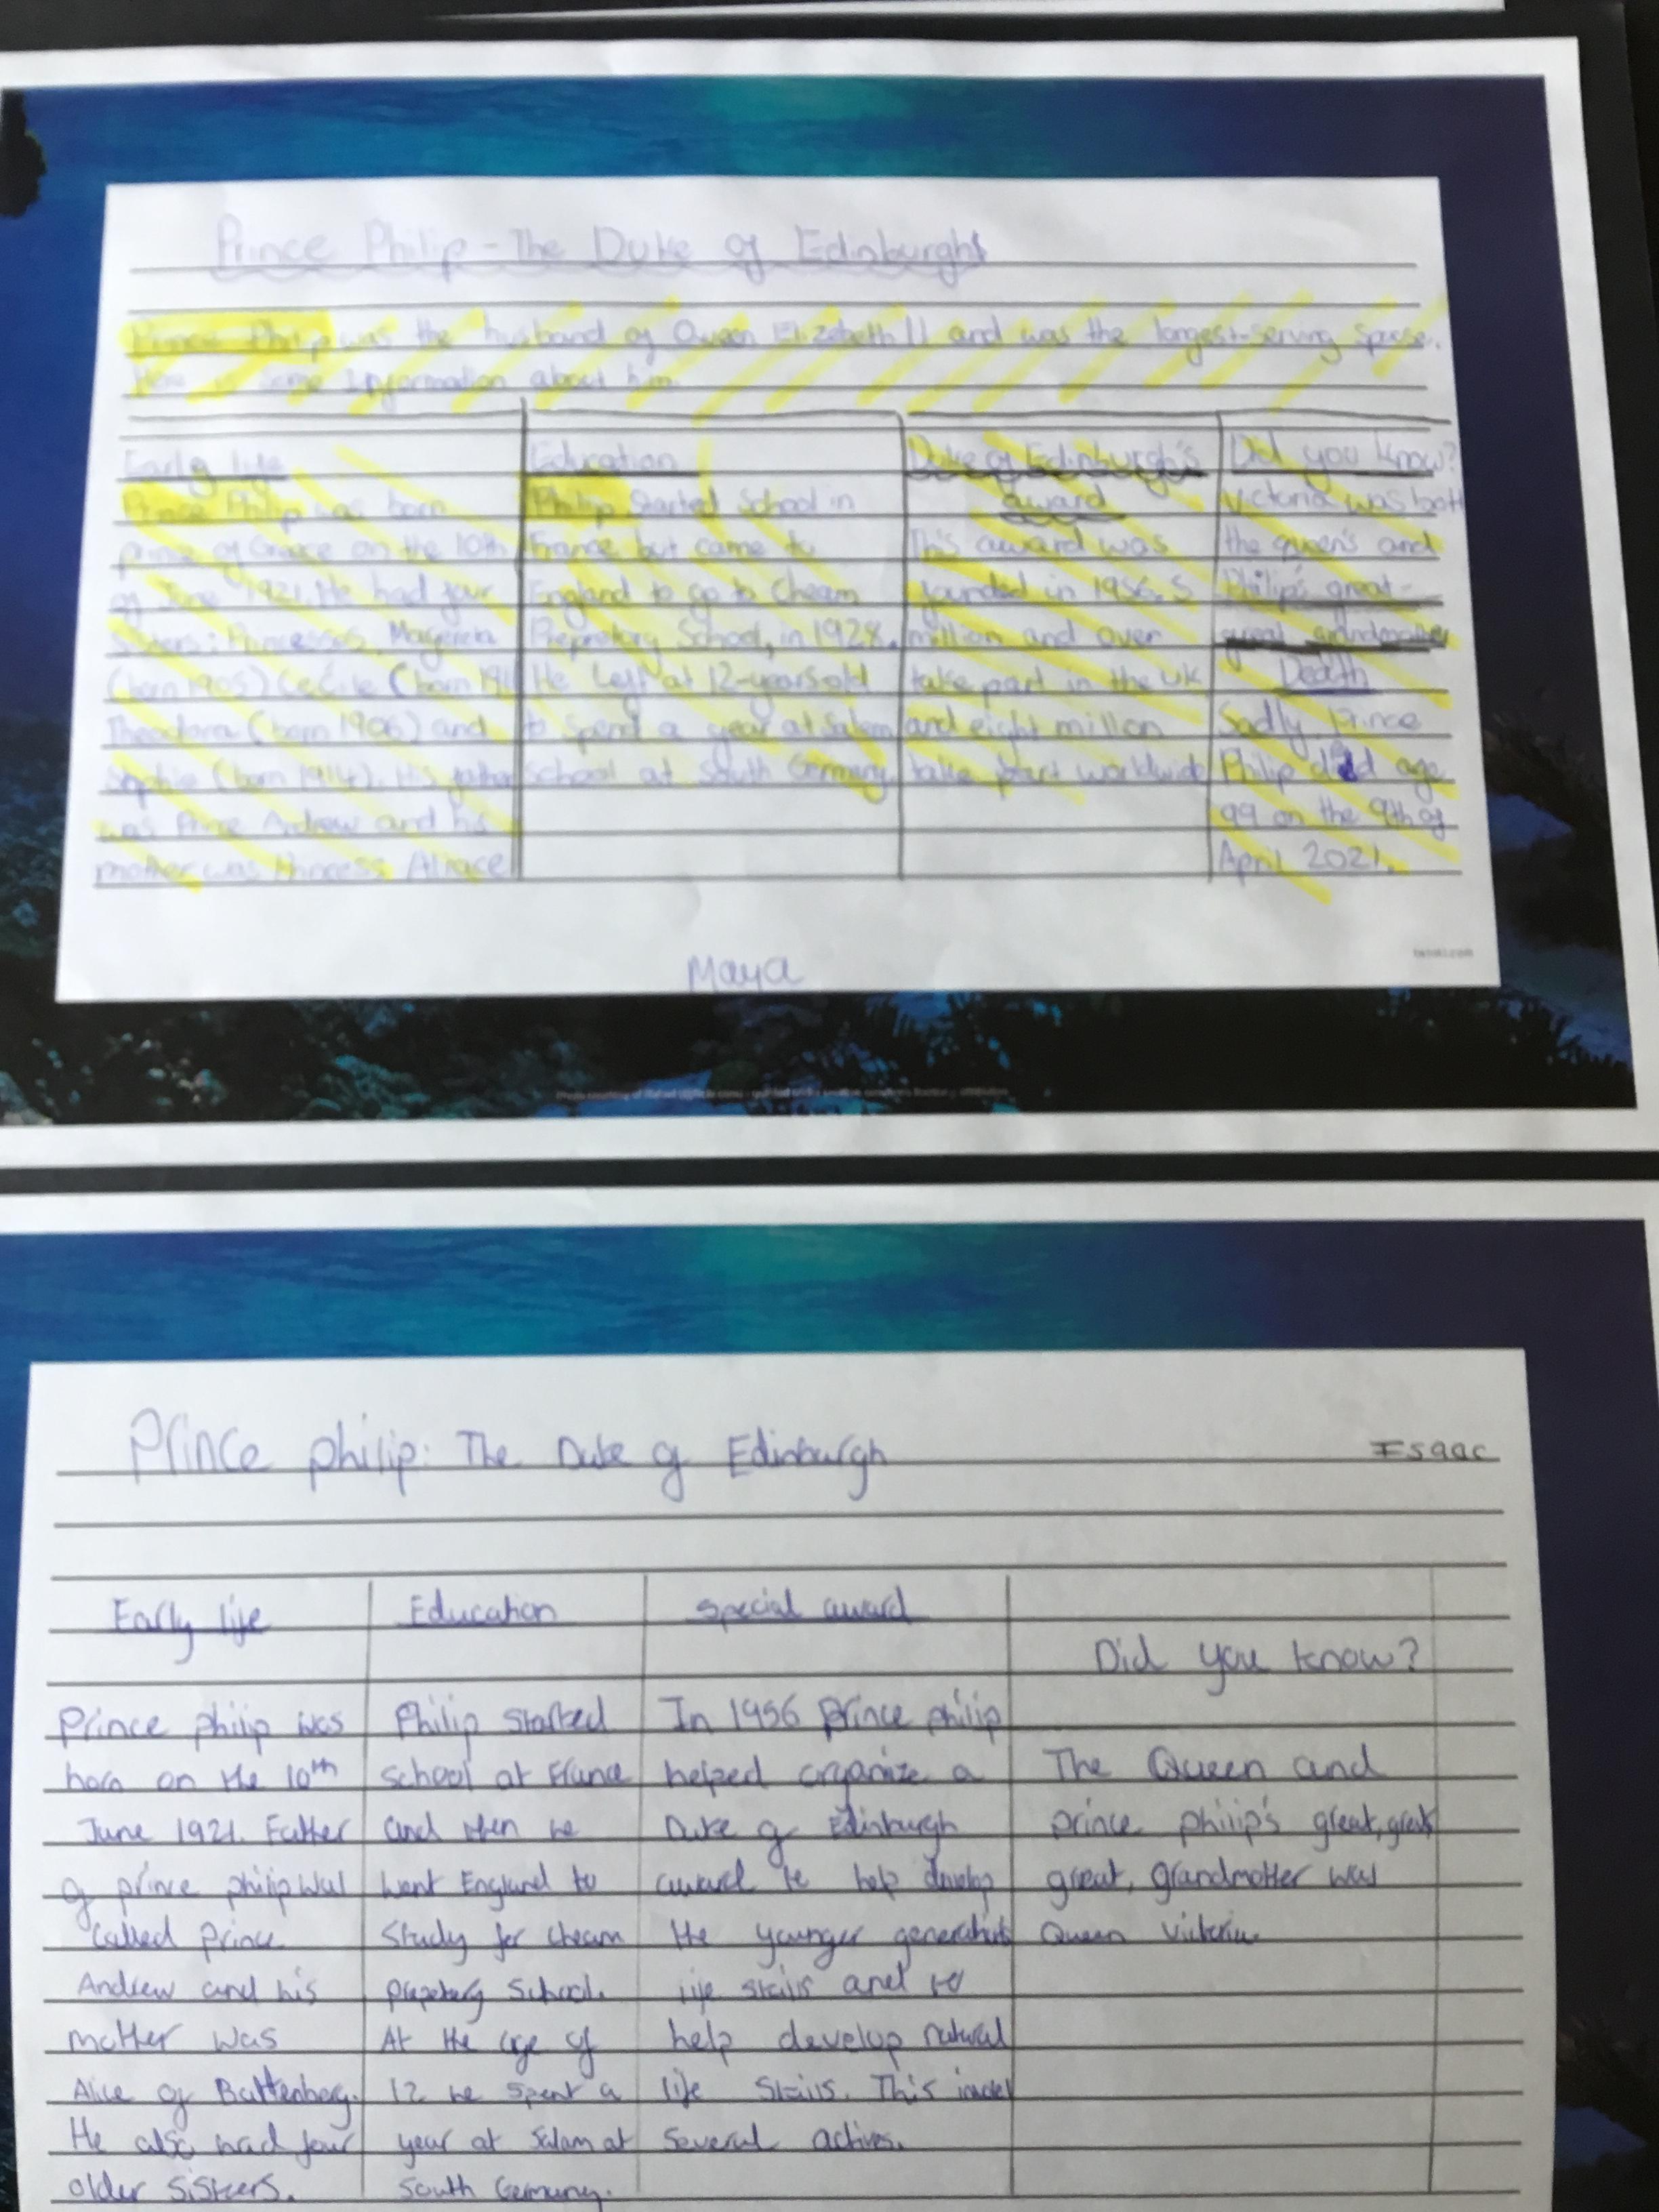 Prince Philip - The Duke of Edinburgh
Prince Philip was the husband of Queen Elizabeth II and was the longest-serving Spouse.
Here is some Information about him.
Early life
Prince Philip was born
prince of Greece on the 10th
of June 1921. He had four
sisters: Princesses, Margereta
(born 1905) Cecile (born 1911
Theodora (born 1906) and
Sophie (born 1914). His father
was Prince Andrew and his
mother was Princess
Education
Philip Started School in
France but came to
England to go to Cheam
School, in 1928.
He left at 12-years old
to spend a year at Salem
School at South Germany
Duke of Edinburgh's
award
This award was
founded in 1956. 5
million and over
take part in the UK
and eight million
take part worldwide
Did you know?
Victoria was both
the queen's and
Philip's great-
great grandmother
Death
Sadly, Prince
Philip died age
99 on the 9th of
April 2021.
Maya
Prince philip: The Duke of Edinburgh
Esaac
Early life
Prince philip was
born on the 10th
June 1921. Father
of prince philip was
Called prince
Andrew and his
mother was
Alice of Battenberg.
He also had four
older sisters.
Education
Philip started
school at France
and then he
went England to
study for cheam
School.
At the age of
12 he spent a
year at Salam at
South Germany.
special award
In 1956 prince philip
helped organize a
Duke of Edinburgh
award to help develop
the younger
life skills and to
help develop natural
life skills. This
several actives.
Did you know?
The Queen and
prince philip's great, great
great, grandmother was
Queen Victoria.